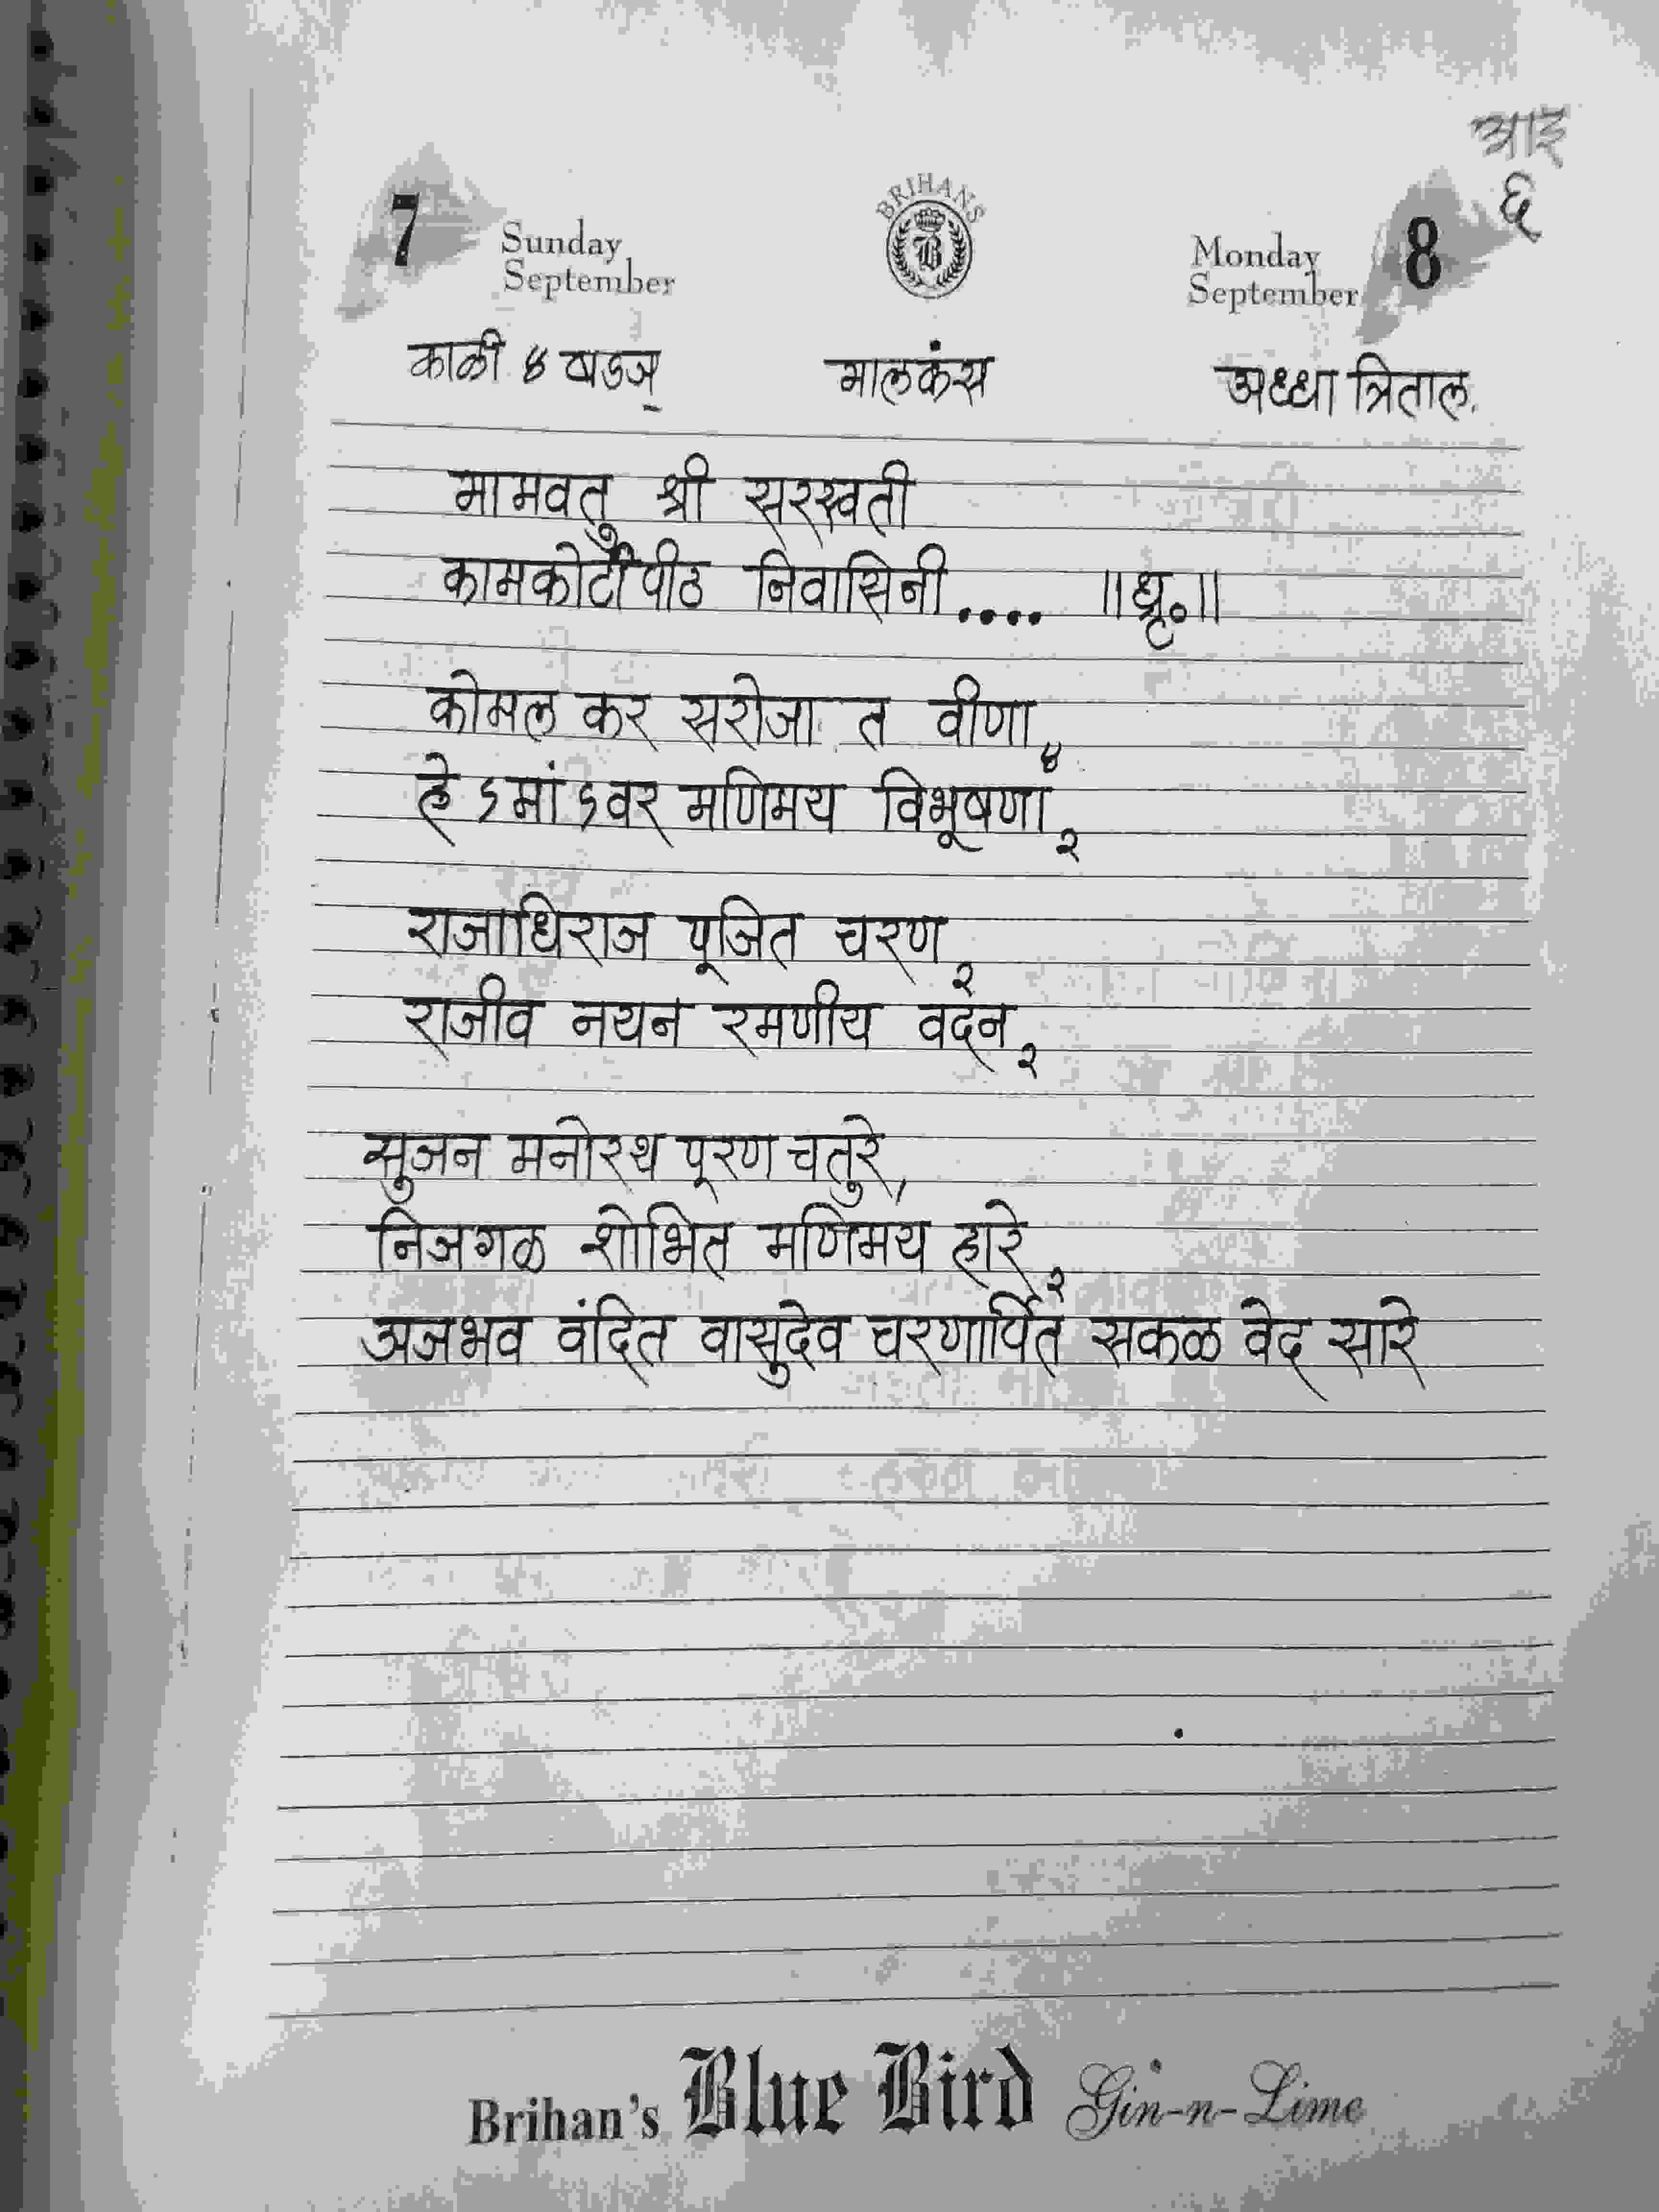 आई
६
7 Sunday September BRIHANS B Monday September 8
काळी ४ षडज् मालकंस अध्धा त्रिताल.
मामवतु श्री सरस्वती
कामकोटीपीठ निवासिनी.... ॥धृ०॥
कोमल कर सरोजा त वीणा,४
हे ऽमांऽवर मणिमय विभूषणा,२
राजाधिराज पूजित चरण,२
राजीव नयन रमणीय वदन,२
सुजन मनोरथ पूरण चतुरे,
निजगळ शोभित मणिमय हारे,२
अजभव वंदित वासुदेव चरणार्पित सकळ वेद सारे
Brihan's Blue Bird Gin-n-Lime